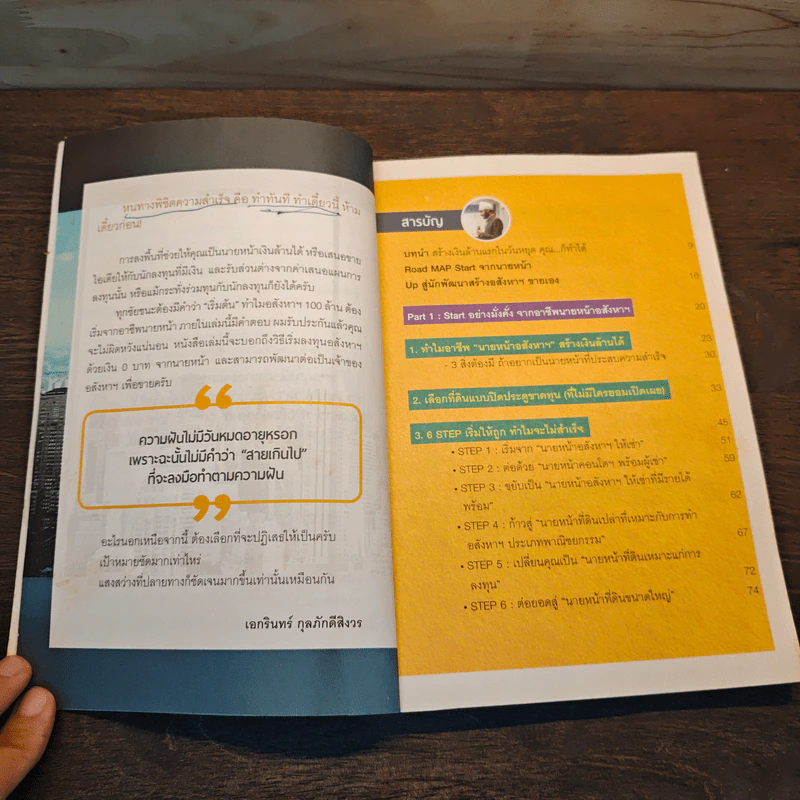 หนทางพิชิตความสำเร็จ คือ ทำทันที ทำเดี๋ยวนี้ ห้าม
เดี๋ยวก่อน!
การลงพื้นที่ช่วยให้คุณเป็นนายหน้าเงินล้านได้ หรือเสนอขาย
ไอเดียให้กับนักลงทุนที่มีเงิน และรับส่วนต่างจากค่าเสนอแผนการ
ลงทุนนั้น หรือแม้กระทั่งร่วมทุนกับนักลงทุนก็ยังได้ครับ
ทุกชัยชนะต้องมีคำว่า "เริ่มต้น" ทำไมอสังหาฯ 100 ล้าน ต้อง
เริ่มจากอาชีพนายหน้า ภายในเล่มนี้มีคำตอบ ผมรับประกันแล้วคุณ
จะไม่ผิดหวังแน่นอน หนังสือเล่มนี้จะบอกถึงวิธีเริ่มลงทุนอสังหาฯ
ด้วยเงิน 0 บาท จากนายหน้า และสามารถพัฒนาต่อเป็นเจ้าของ
อสังหาฯ เพื่อขายครับ
ความฝันไม่มีวันหมดอายุหรอก
เพราะฉะนั้นไม่มีคำว่า "สายเกินไป"
ที่จะลงมือทำตามความฝัน
อะไรนอกเหนือจากนี้ ต้องเลือกที่จะปฏิเสธให้เป็นครับ
เป้าหมายชัดมากเท่าไหร่
แสงสว่างที่ปลายทางก็ชัดเจนมากขึ้นเท่านั้นเหมือนกัน
เอกรินทร์ กุลภักดีสิงวร
สารบัญ
บทนำ สร้างเงินล้านแรกในวันหยุด คุณ...ก็ทำได้ 9
Road MAP Start จากนายหน้า
Up สู่นักพัฒนาสร้างอสังหาฯ ขายเอง 16
Part 1 : Start อย่างมั่งคั่ง จากอาชีพนายหน้าอสังหาฯ 20
1. ทำไมอาชีพ "นายหน้าอสังหาฯ" สร้างเงินล้านได้ 23
- 3 สิ่งต้องมี ถ้าอยากเป็นนายหน้าที่ประสบความสำเร็จ 30
2. เลือกที่ดินแบบปิดประตูขาดทุน (ที่ไม่มีใครยอมเปิดเผย) 33
3. 6 STEP เริ่มให้ถูก ทำไมจะไม่สำเร็จ 45
• STEP 1 : เริ่มจาก "นายหน้าอสังหาฯ ให้เช่า" 51
• STEP 2 : ต่อด้วย "นายหน้าคอนโดฯ พร้อมผู้เช่า" 59
• STEP 3 : ขยับเป็น "นายหน้าอสังหาฯ ให้เช่าที่มีรายได้
พร้อม" 62
• STEP 4 : ก้าวสู่ "นายหน้าที่ดินเปล่าที่เหมาะกับการทำ
อสังหาฯ ประเภทพาณิชยกรรม" 67
• STEP 5 : เปลี่ยนคุณเป็น "นายหน้าที่ดินเหมาะแก่การ
ลงทุน" 72
• STEP 6 : ต่อยอดสู่ "นายหน้าที่ดินขนาดใหญ่" 74